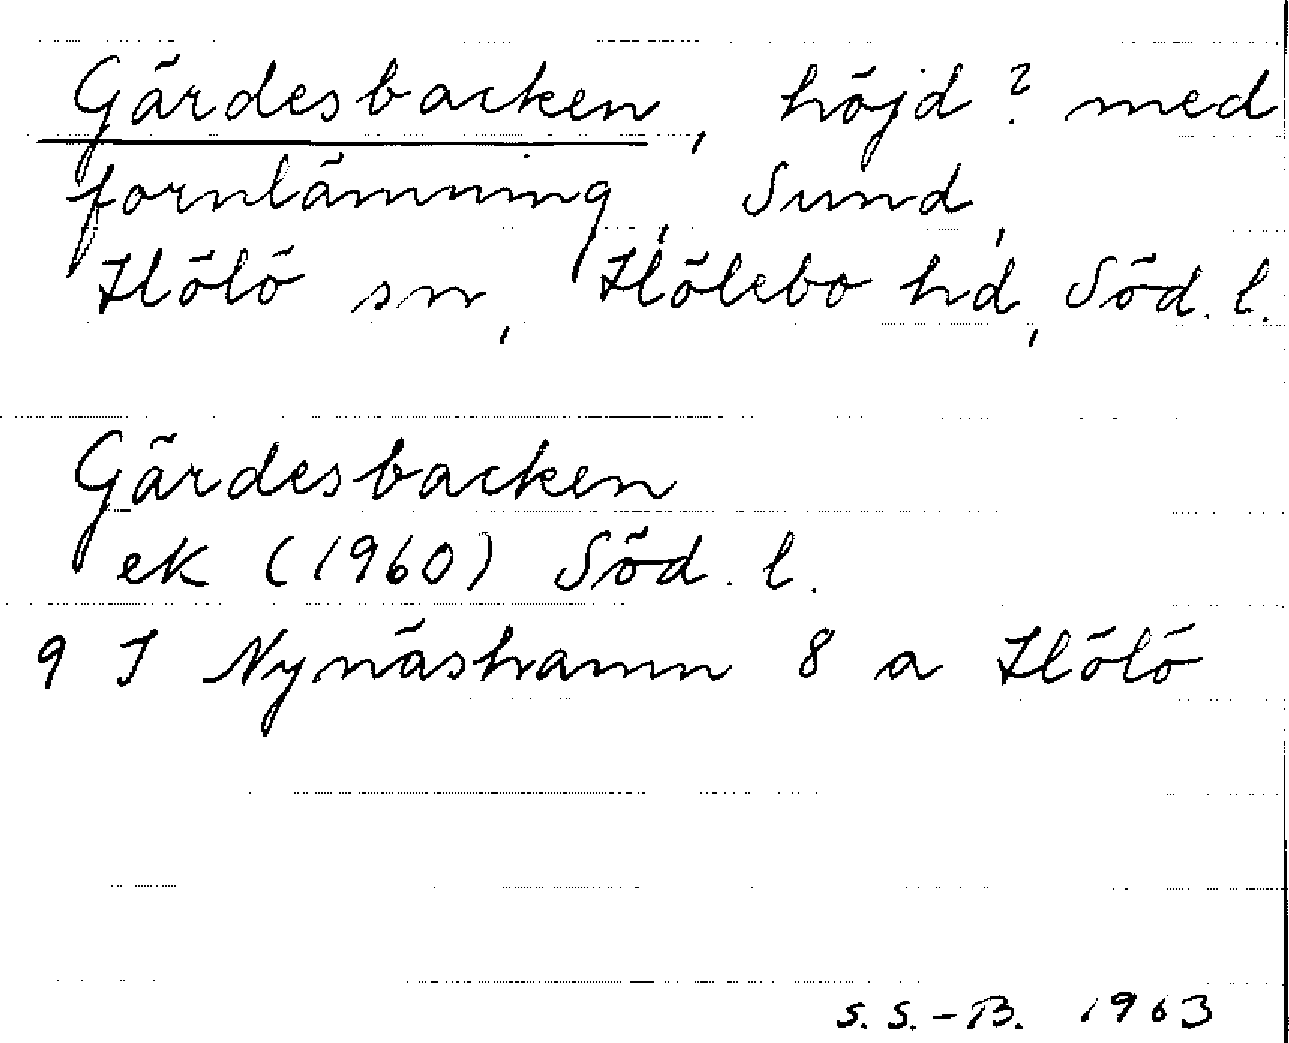 Gärdesbacken, höjd? med
fornlämning, Sund,
Hölö sn, Hölebo hd, Söd. l.
Gärdesbacken
ek (1960) Söd. l.
9 I Nynäshamn 8 a Hölö
S. S.-B. 1963